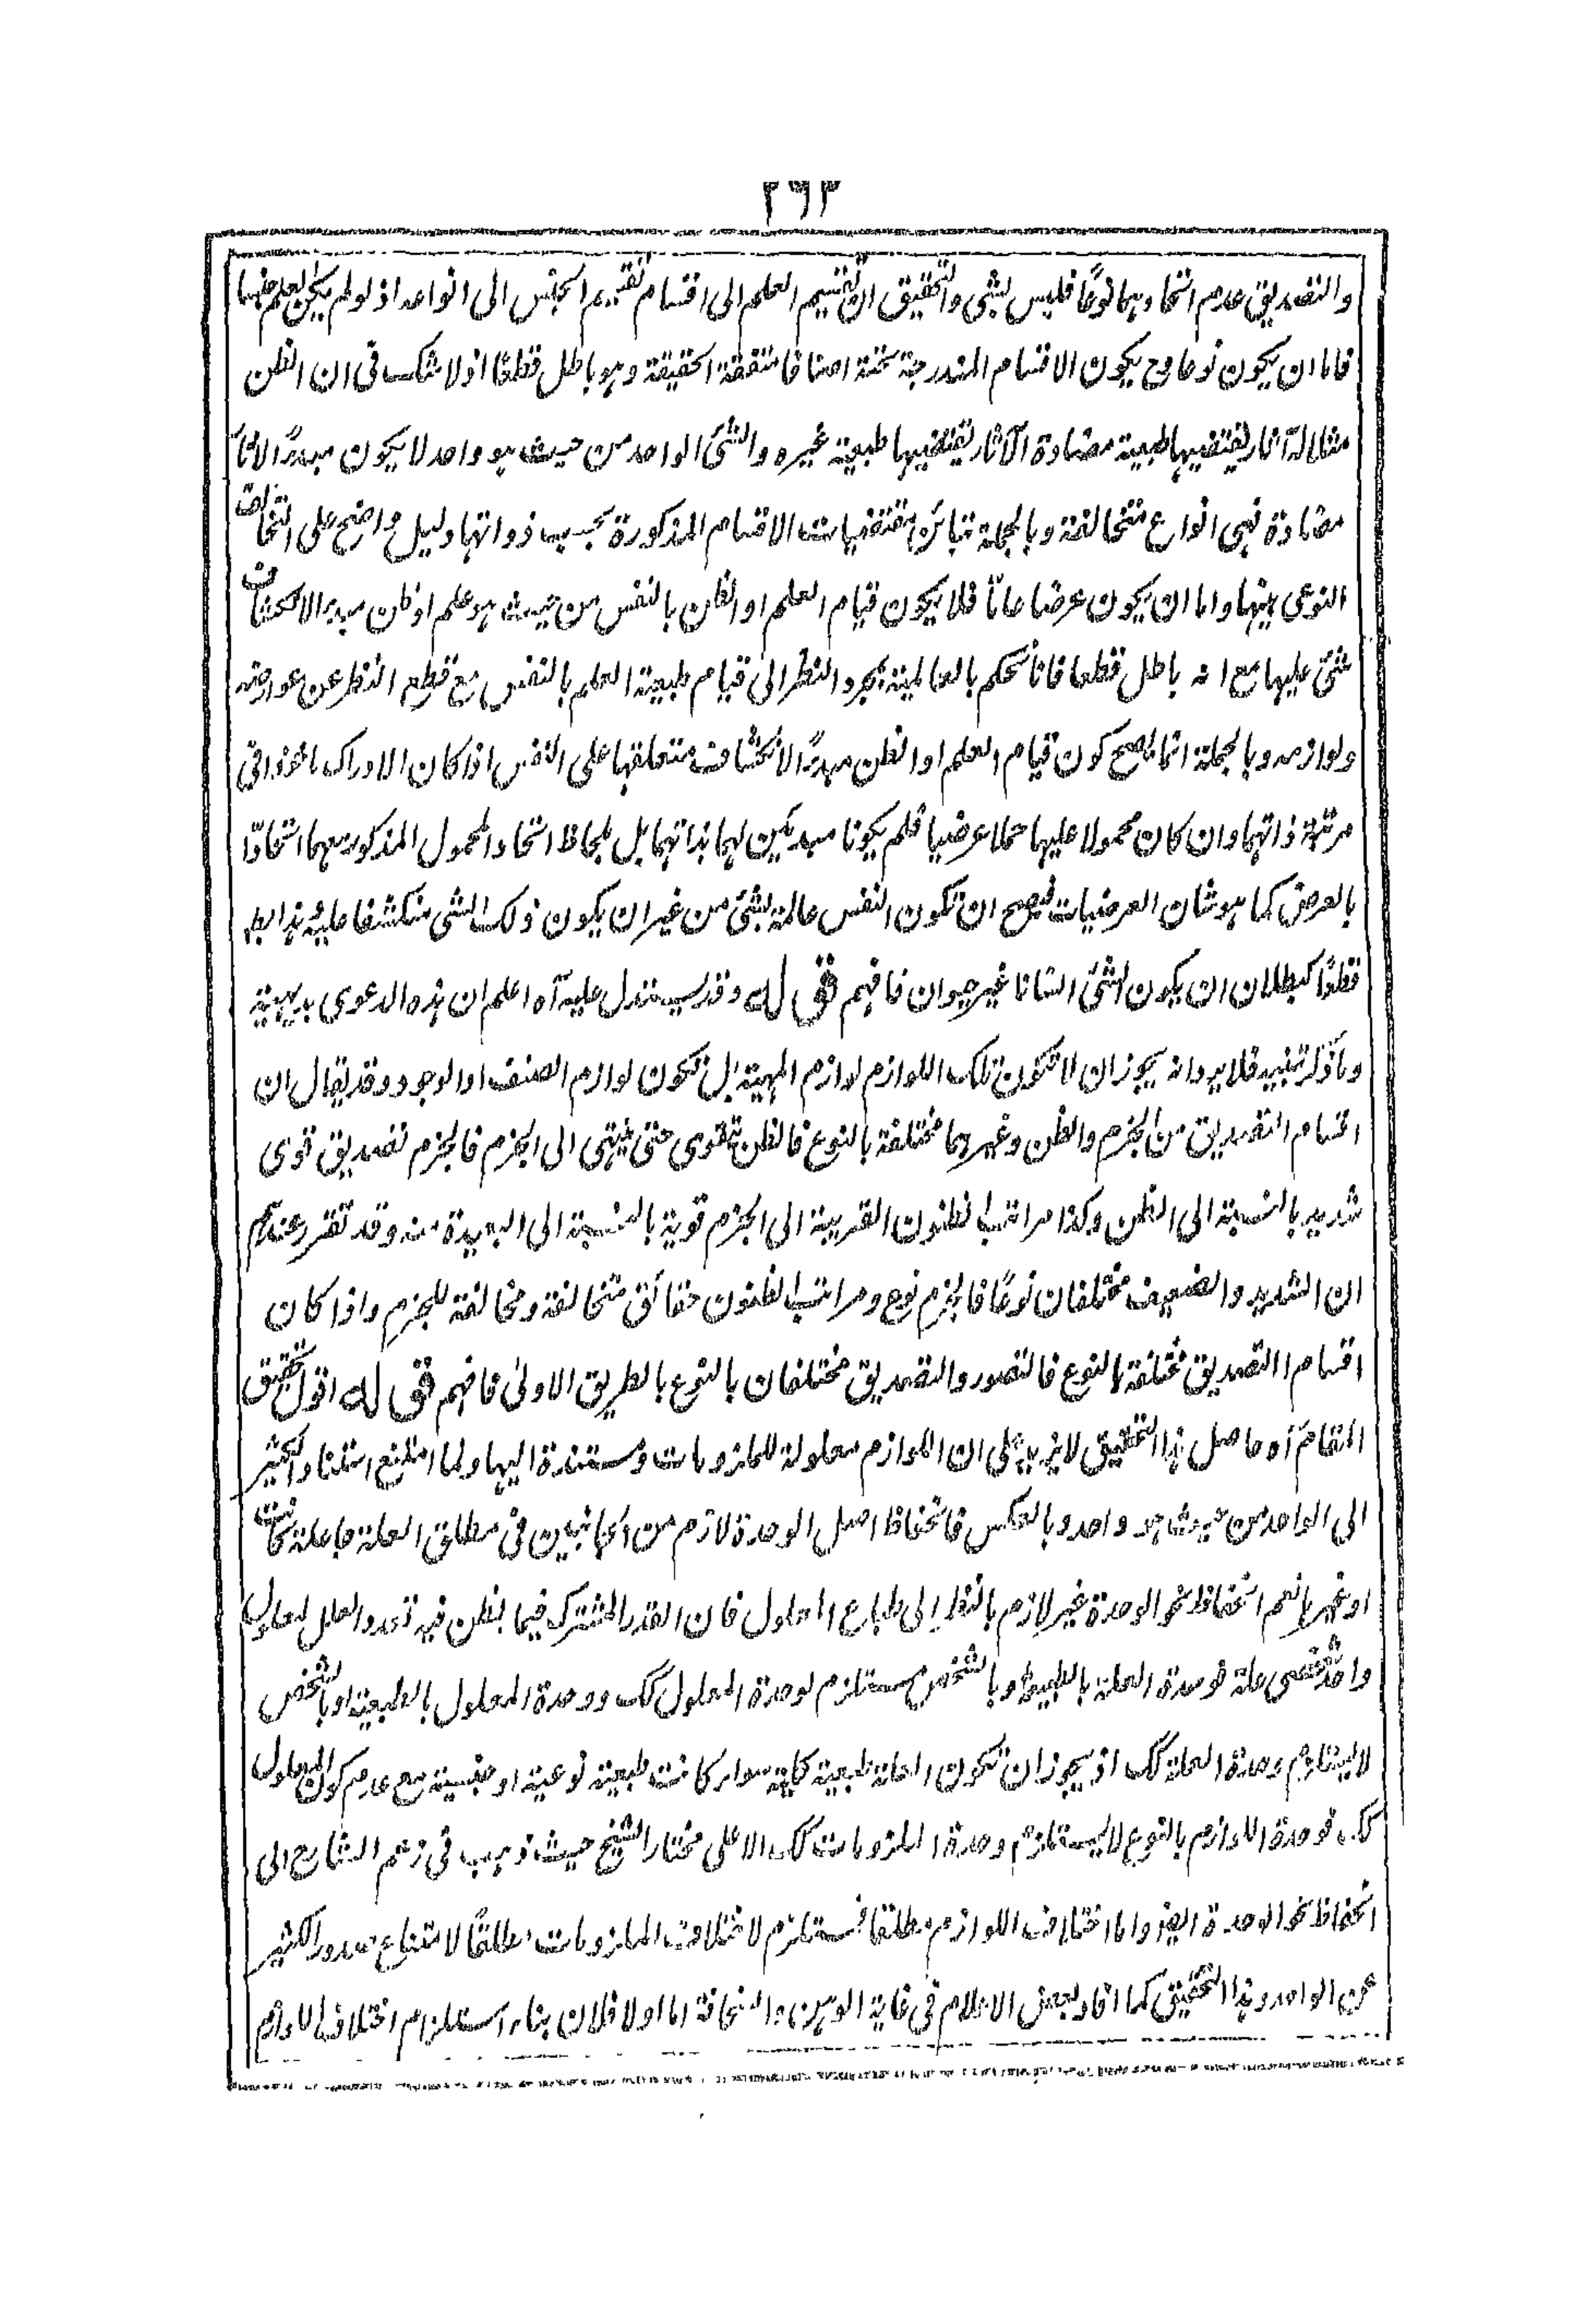 ٢٩٣
والتصديق عدم اتحادهما نوعًا فليس بشى والتحقيق ان تقسيم العلم الى اقسام تقسيم الجنس الى انواعه اذ لو لم يكن العلم جنسا
فاما ان يكون نوعا وح يكون الاقسام المندرجة تحته اصنافا متفقة الحقيقة وهو باطل قطعًا اذ لا شك فى ان الظن
مثلا له آثار يقتضيها طبيعته مضادة لآثار يقتضيها طبيعة غيره والشئ الواحد من حيث هو واحد لا يكون مبدءً الآثار
مضادة فهى انواع متخالفة وبالجملة تباين مقتضيات الاقسام المذكورة بحسب ذواتها دليل واضح على التخالف
النوعى بينها واما ان يكون عرضا عامًا فلا يكون قيام العلم او الظن بالنفس من حيث هو علم او ظن مبدء الانكشاف
شئ عليها مع انه باطل قطعا فانا نحكم بالعالمية بمجرد النظر الى قيام طبيعة العلم بالنفس مع قطع النظر عن عوارضه
ولوازمه وبالجملة انما يصح كون قيام العلم او الظن مبدءً الانكشاف متعلقها على النفس اذا كان الادراك ماخوذا فى
مرتبة ذاتهما وان كان محمولا عليها حملا عرضيا فلم يكونا مبدئين لهما بذاتهما بل بلحاظ اتحاد المحمول المذكور معهما اتحادًا
بالعرض كما هو شان العرضيات فيصح ان تكون النفس عالمة بشئ من غير ان يكون ذلك الشى منكشفا عليه هذا بط
قطعًا كبطلان ان يكون الشئ انسانا غير حيوان فافهم قوله وقد يستدل عليه آه اعلم ان هذه الدعوى بديهية
وما ذكر تنبيه فلا يرد انه يجوز ان لا تكون تلك اللوازم لوازم المهية بل تكون لوازم الصنف او الوجود وقد يقال ان
اقسام التصديق من الجزم والظن وغيرهما مختلفة بالنوع فالظن يتقوى حتى ينتهى الى الجزم فالجزم تصديق قوى
شديد بالنسبة الى الظن وكذا مراتب الظنون القريبة الى الجزم قوية بالنسبة الى البعيدة منه وقد تقرر عندهم
ان الشديد والضعيف مختلفان نوعًا فالجزم نوع ومراتب الظنون حقائق متخالفة ومخالفة للجزم واذا كان
اقسام التصديق مختلفة بالنوع فالتصور والتصديق مختلفان بالنوع بالطريق الاولى فافهم قوله اقول تحقيق
المقام آه حاصل هذا التحقيق لا يزيد على ان اللوازم معلولة للملزومات ومستندة اليها ولما امتنع استناد الكثير
الى الواحد من حيث هو واحد وبالعكس فانحفاظ اصل الوحدة لازم من الجانبين فى مطلق العلة جاعلة كانت
او غيرها نعم انحفاظ نحو الوحدة غير لازم بالنظر الى طباع المعلول فان القدر المشترك فيما يظن فيه تعدد العلل لمعلول
واحد شخصى علة فوحدة العلة بالطبيعة او بالشخص مستلزم لوحدة المعلول كك ووحدة المعلول بالطبيعة او بالشخص
لا يستلزم وحدة العلة كك اذ يجوز ان تكون العلة طبيعة كلية سواء كانت طبيعة نوعية او جنسية مع عدم كون المعلول
كك فوحدة اللوازم بالنوع لا يستلزم وحدة الملزومات كك الا على مختار الشيخ حيث ذهب فى زعم الشارح الى
انحفاظ نحو الوحدة ايضا واما اختلاف اللوازم مطلقا فمستلزم لاختلاف الملزومات مطلقًا لامتناع صدور الكثير
عن الواحد وهذا التحقيق كما افاد بعض الاعلام فى غاية الوهن والسخافة اما اولا فلان بناء استلزام اختلاف اللوازم